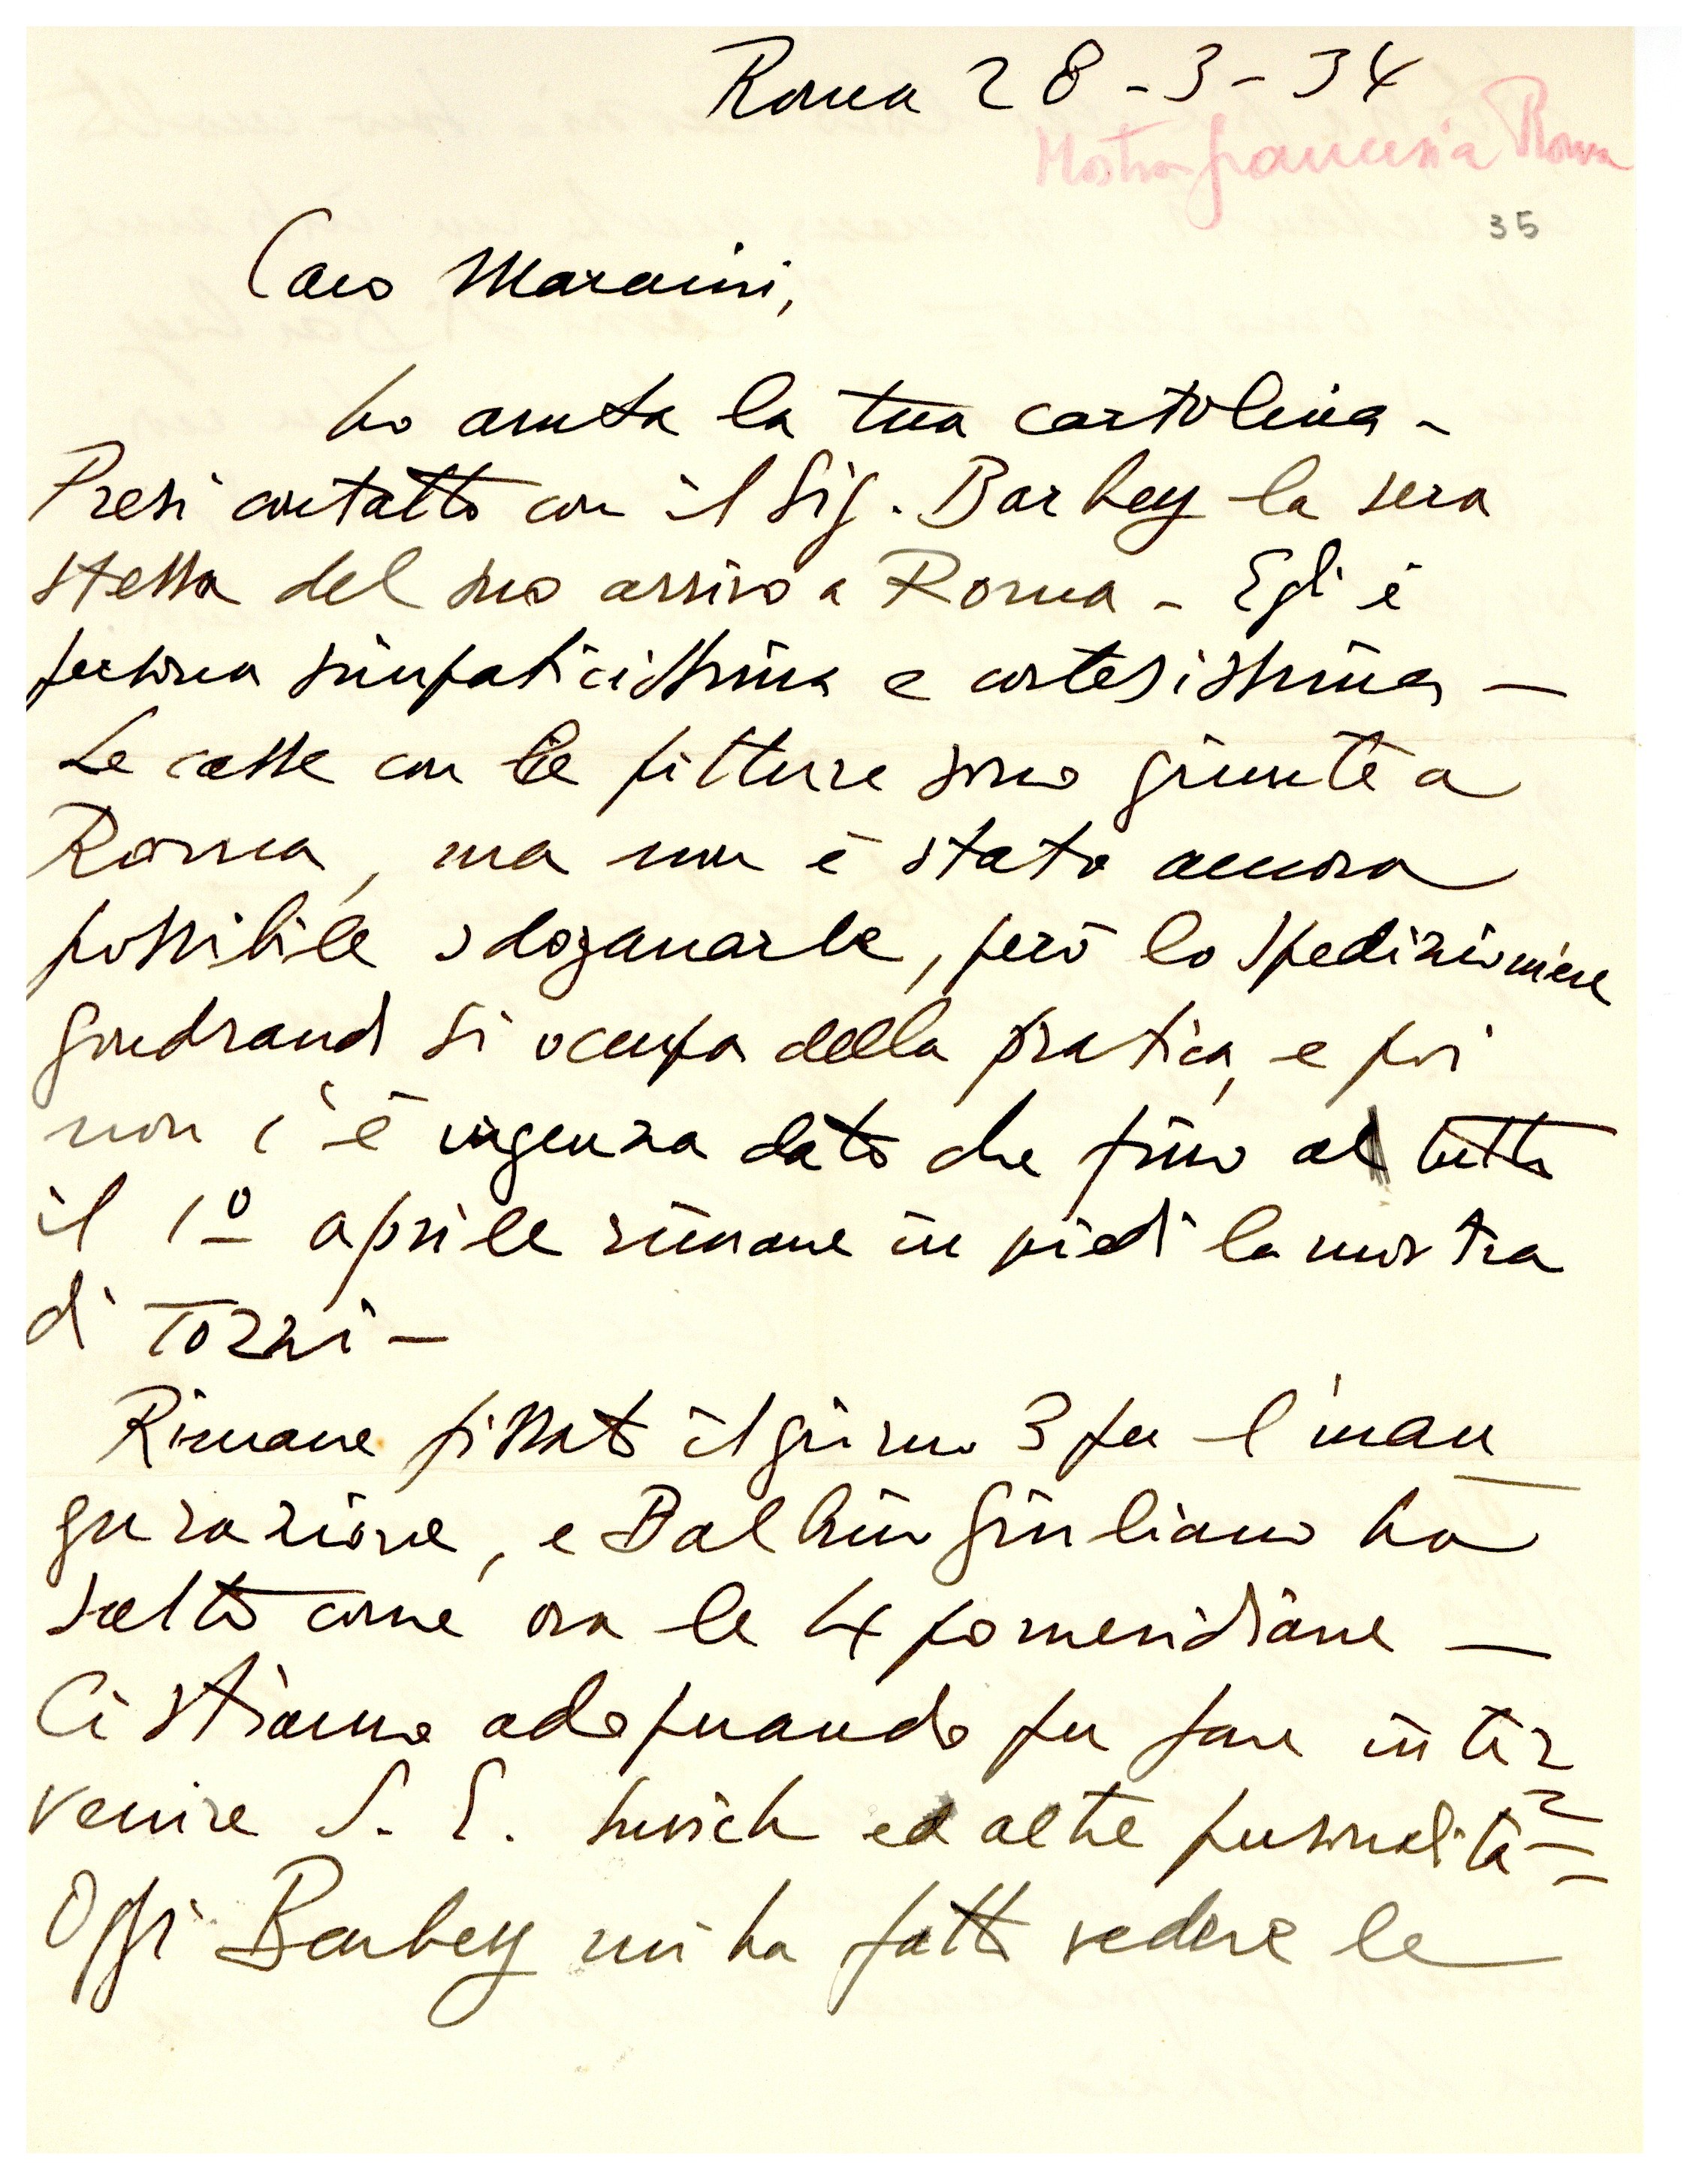 Roma 28-3-34
Mostra francese a Roma
35
Caro Maraini,
ho avuta la tua cartolina -
Presi contatto con il Sig. Barbey la sera
stessa del suo arrivo a Roma - Egli è
persona simpaticissima e cortesissima -
Le casse con le pitture sono giunte a
Roma, ma non è stato ancora
possibile sdoganarle, però lo spedizioniere
Gondrand si occupa della pratica, e poi
non c'è urgenza dato che fino a tutto
il 1º aprile rimane in piedi la mostra
di Tozzi -
Rimane fissato il giorno 3 per l'inau
gurazione, e Balbino Giuliano ha
scelto come ora le 4 pomeridiane -
Ci stiamo adoperando per fare inter
venire S. E. Suvich ed altre personalità =
Oggi Barbey mi ha fatto vedere le